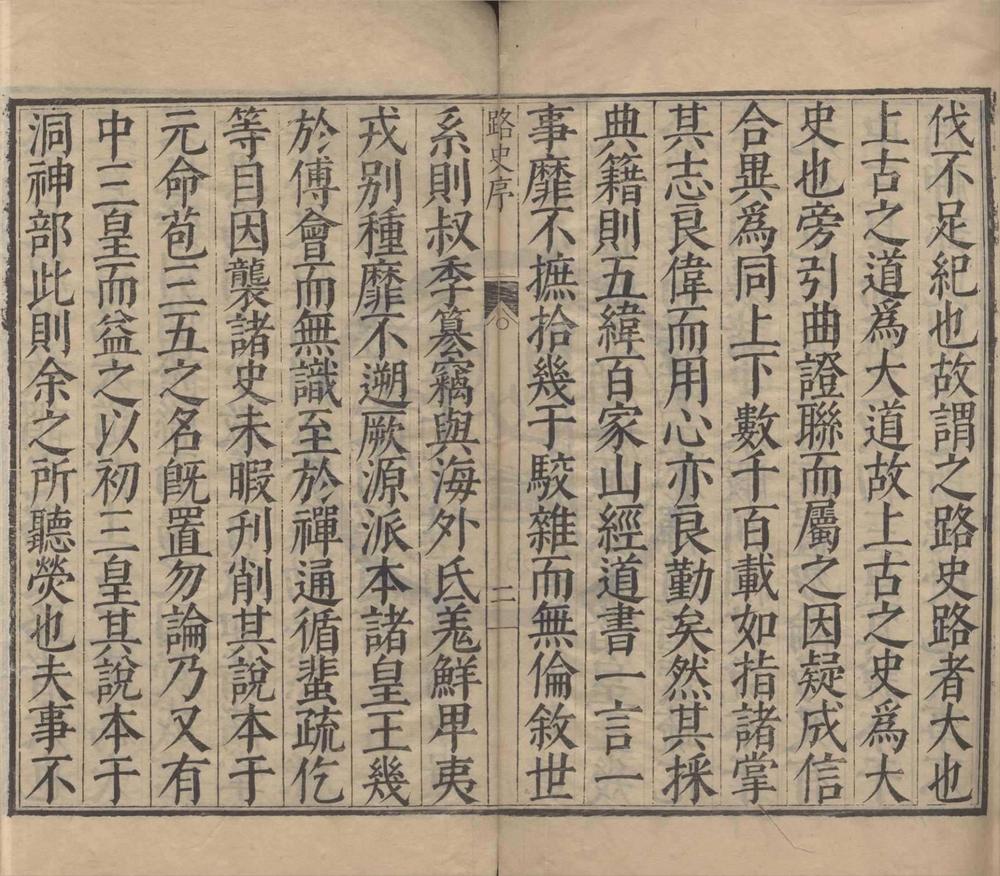 伐不足紀也故謂之路史路者大也
上古之道爲大道故上古之史爲大
史也旁引曲證聯而屬之因疑成信
合異爲同上下數千百載如指諸掌
其志良偉而用心亦良勤矣然其採
典籍則五緯百家山經道書一言一
事靡不摭拾幾于駁雜而無倫敘世
路史序
二
系則叔季篡竊與海外氐羌鮮卑夷
戎别種靡不遡厥源派本諸皇王幾
於傅會而無識至於禪通循蜚疏仡
等目因襲諸史未暇刊削其說本于
元命苞三五之名旣置勿論乃又有
中三皇而益之以初三皇其說本于
洞神部此則余之所聽熒也夫事不